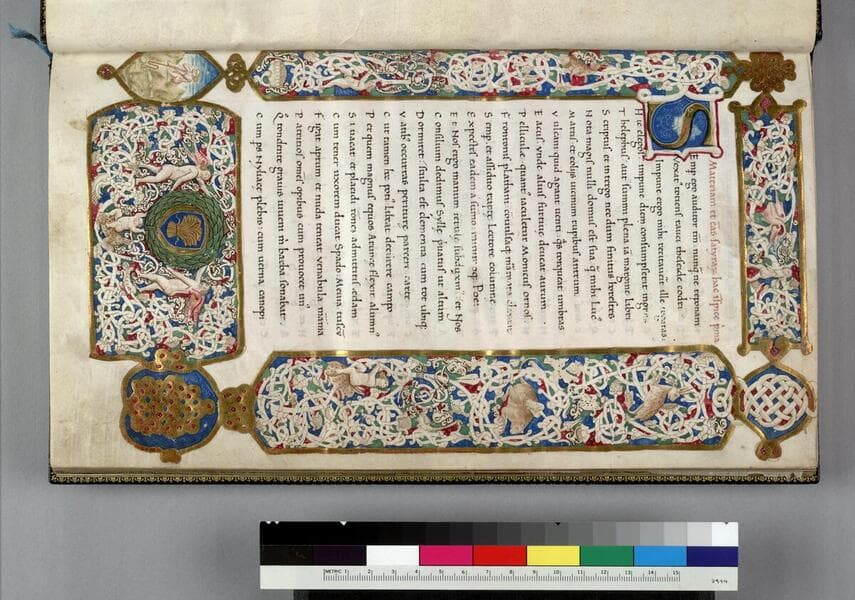 Materiam et cās satyrarum hac ispice pma
Semp ego auditor tm̄ nunq̄ ne reponam
Vexat9 totiens rauci theseide codri
Impune ergo mihi recitauerit ille togatas
Hic elegos? impune diem consumpserit ingens
Telephus? aut summi plena iā margine libri
Scriptus et in tergo nec dum finitus horestes
Nota magis nulli domus est sua q̄ mihi Luc
Martis et eolijs uicinum rupibus antrum
Vulcani quid agant uenti q̄s torqueat umbras
Eacus unde alius furtiue deuehat aurum
Pellicule quantas iaculetur Monicus ornos
Frontonis platani conuulsaq
Semp et assiduo rupte Lectore columne
Expectes eadem a sūmo minimoq Poeta
Et Nos ergo manum ferule subduximus et Nos
Consilium dedimus Sylle priuatus ut altum
Dormiret stulta est clementia cum tot ubiq
Vatib9 occurras periture parcere carte
Cur tamen hoc poti9 Libeat decurrere campo
Per quem magnus equos Aurunce flexit alumn9
Si uacat et placidi admittitis edam
Cum tener uxorem ducat Spado Meuia tuscū
Figat aprum et nuda teneat uenabula māma
Patritios omēs opibus cum prouocet un9
tondente grauis iuueni m̄ barba sonabat
Cum ps Nyliace plebis: cum uerna canopi
METRIC 1 2 3 4 5 6 7 8 9 10 11 12 13 14 15